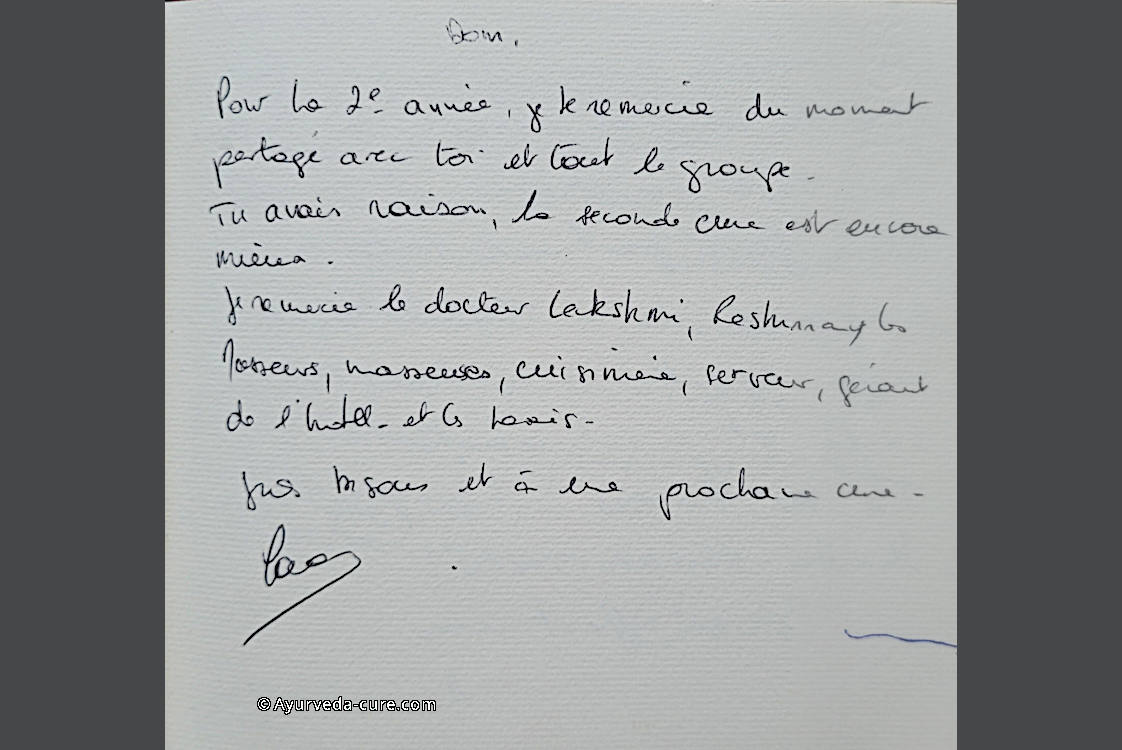 Dom,
Pour la 2e année, je te remercie du moment
partagé avec toi et tout le groupe.
Tu avais raison, la seconde cure est encore
mieux.
Je remercie le docteur Lakshmi, les
masseurs, masseuses, cuisinière, serveur, gérant
de l'hotel et les
gros bisous et à une prochaine cure.
©Ayurveda-cure.com